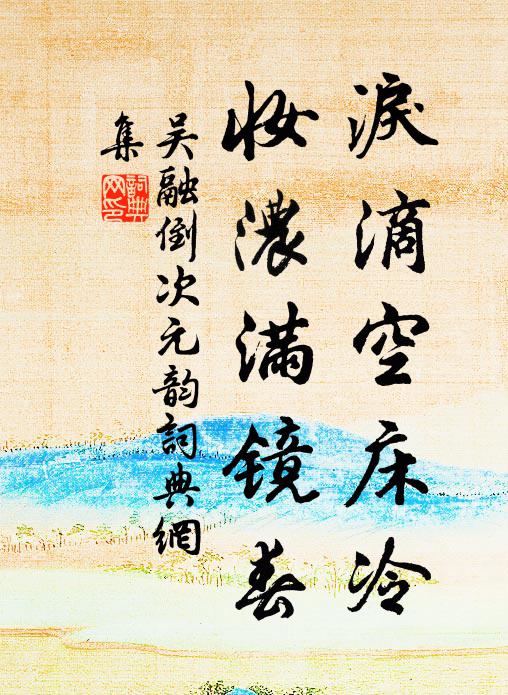 淚滴空床冷
妝濃滿鏡春
吴融倒次元韵詞典網
集
詞典
网印